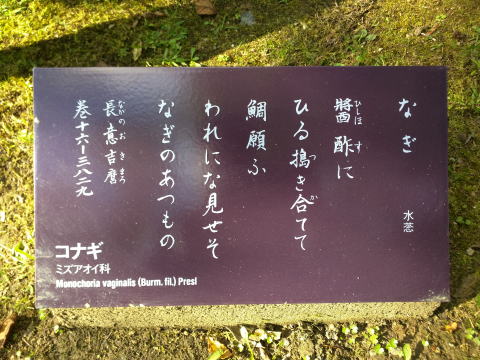 なぎ 水葱
醬酢に
ひしほ す
ひる搗き合てて
つ か
鯛願ふ
われにな見せそ
なぎのあつもの
長意吉麿
ながのおきまろ
巻十六ー三八二九
コナギ
ミズアオイ科
Monochoria vaginalis (Burm. fil.) Presl